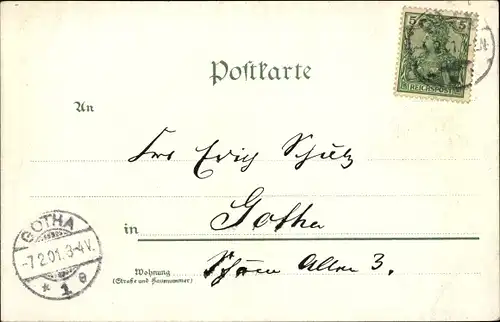 5 5
REICHSPOST
Postkarte
An
Erich Schulz
in Gotha
GOTHA
-7.2.01.3-4V.
* 1 e
Wohnung
(Straße und Hausnummer)
Schöne Allee 3.